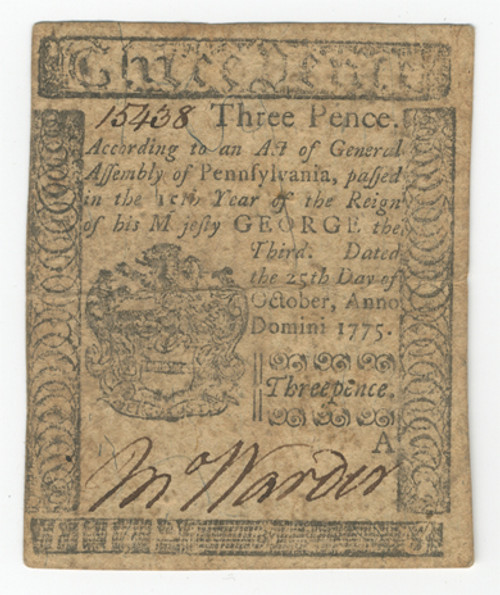 Three Pence
15438 Three Pence.
According to an Act of General
Aſſembly of Pennſylvania, paſſed
in the Year of the Reign
of his M jeſty GEORGE the
Third. Dated
the 25th Day of
October, Anno
Domini 1775.
Threepence.
A
Warder